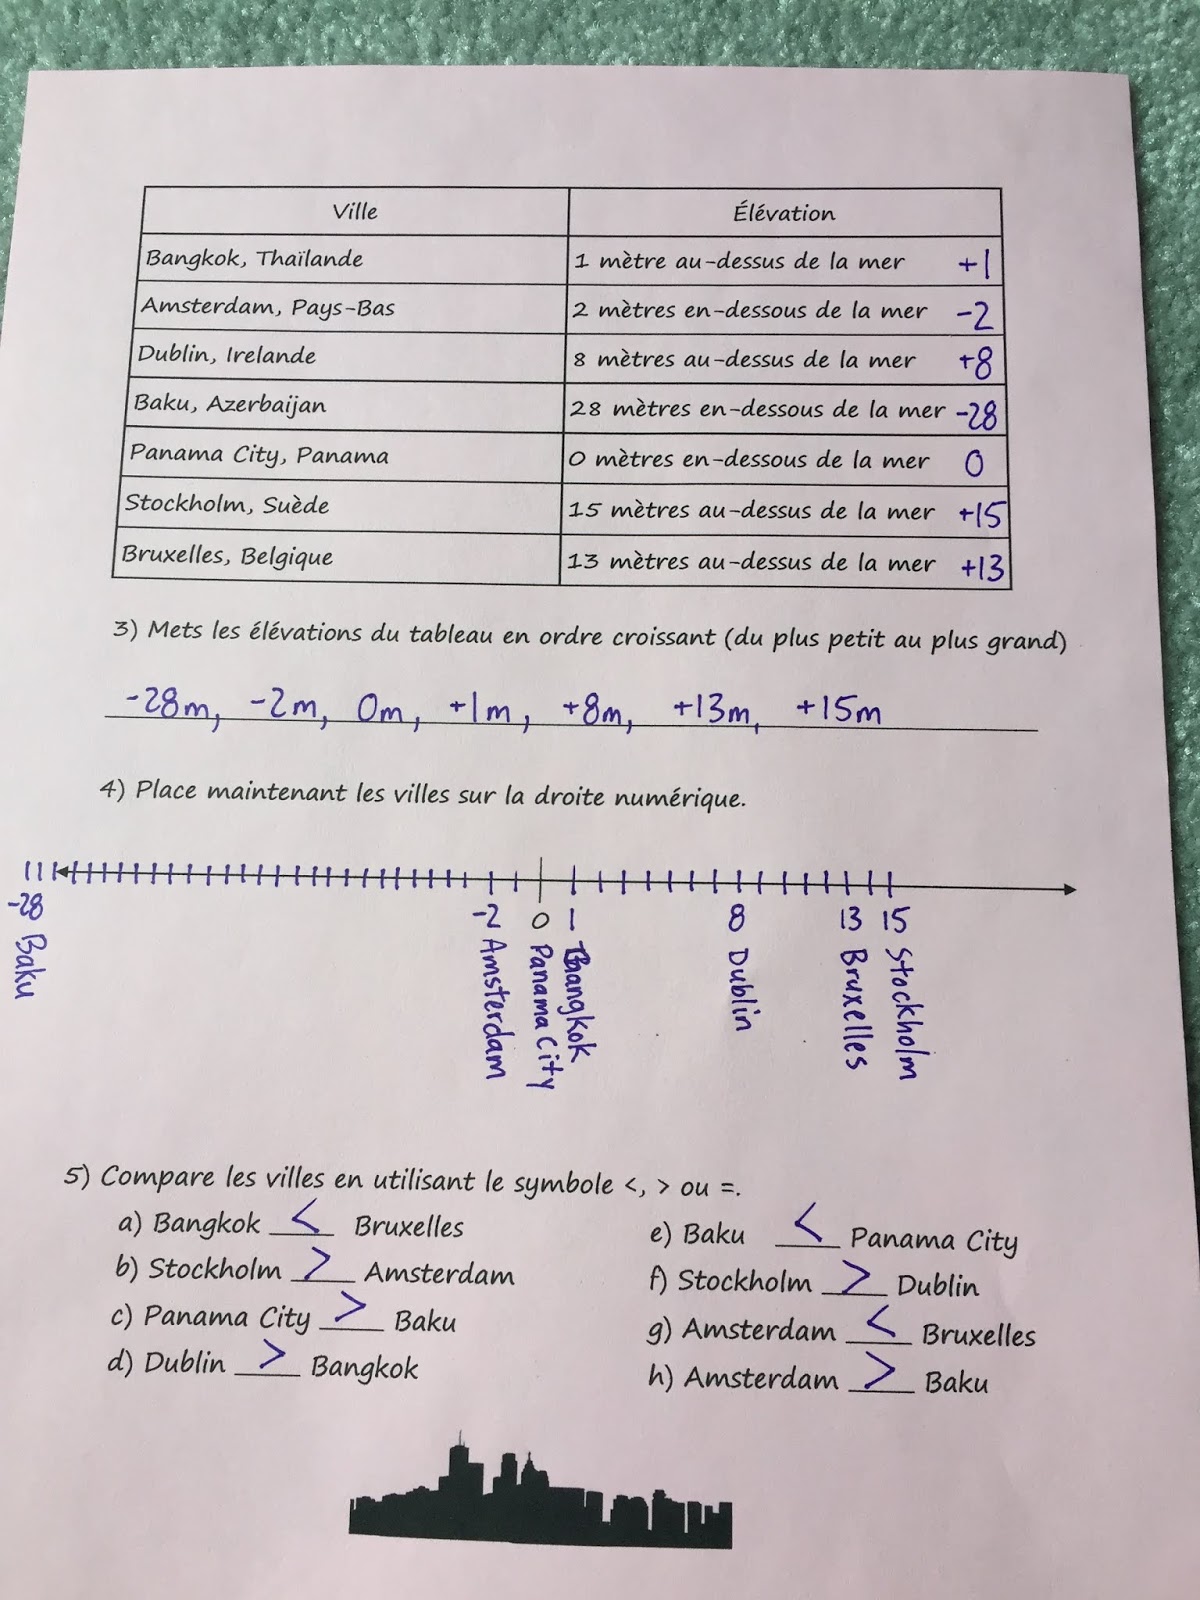 Ville Élévation
Bangkok, Thaïlande 1 mètre au-dessus de la mer +1
Amsterdam, Pays-Bas 2 mètres en-dessous de la mer -2
Dublin, Irelande 8 mètres au-dessus de la mer +8
Baku, Azerbaijan 28 mètres en-dessous de la mer -28
Panama City, Panama 0 mètres en-dessous de la mer 0
Stockholm, Suède 15 mètres au-dessus de la mer +15
Bruxelles, Belgique 13 mètres au-dessus de la mer +13
3) Mets les élévations du tableau en ordre croissant (du plus petit au plus grand)
-28m, -2m, 0m, +1m, +8m, +13m, +15m
4) Place maintenant les villes sur la droite numérique.
-28 -2 0 1 8 13 15
Baku Amsterdam Panama City Bangkok Dublin Bruxelles Stockholm
5) Compare les villes en utilisant le symbole <, > ou =.
a) Bangkok < Bruxelles
b) Stockholm > Amsterdam
c) Panama City > Baku
d) Dublin > Bangkok
e) Baku < Panama City
f) Stockholm > Dublin
g) Amsterdam < Bruxelles
h) Amsterdam > Baku